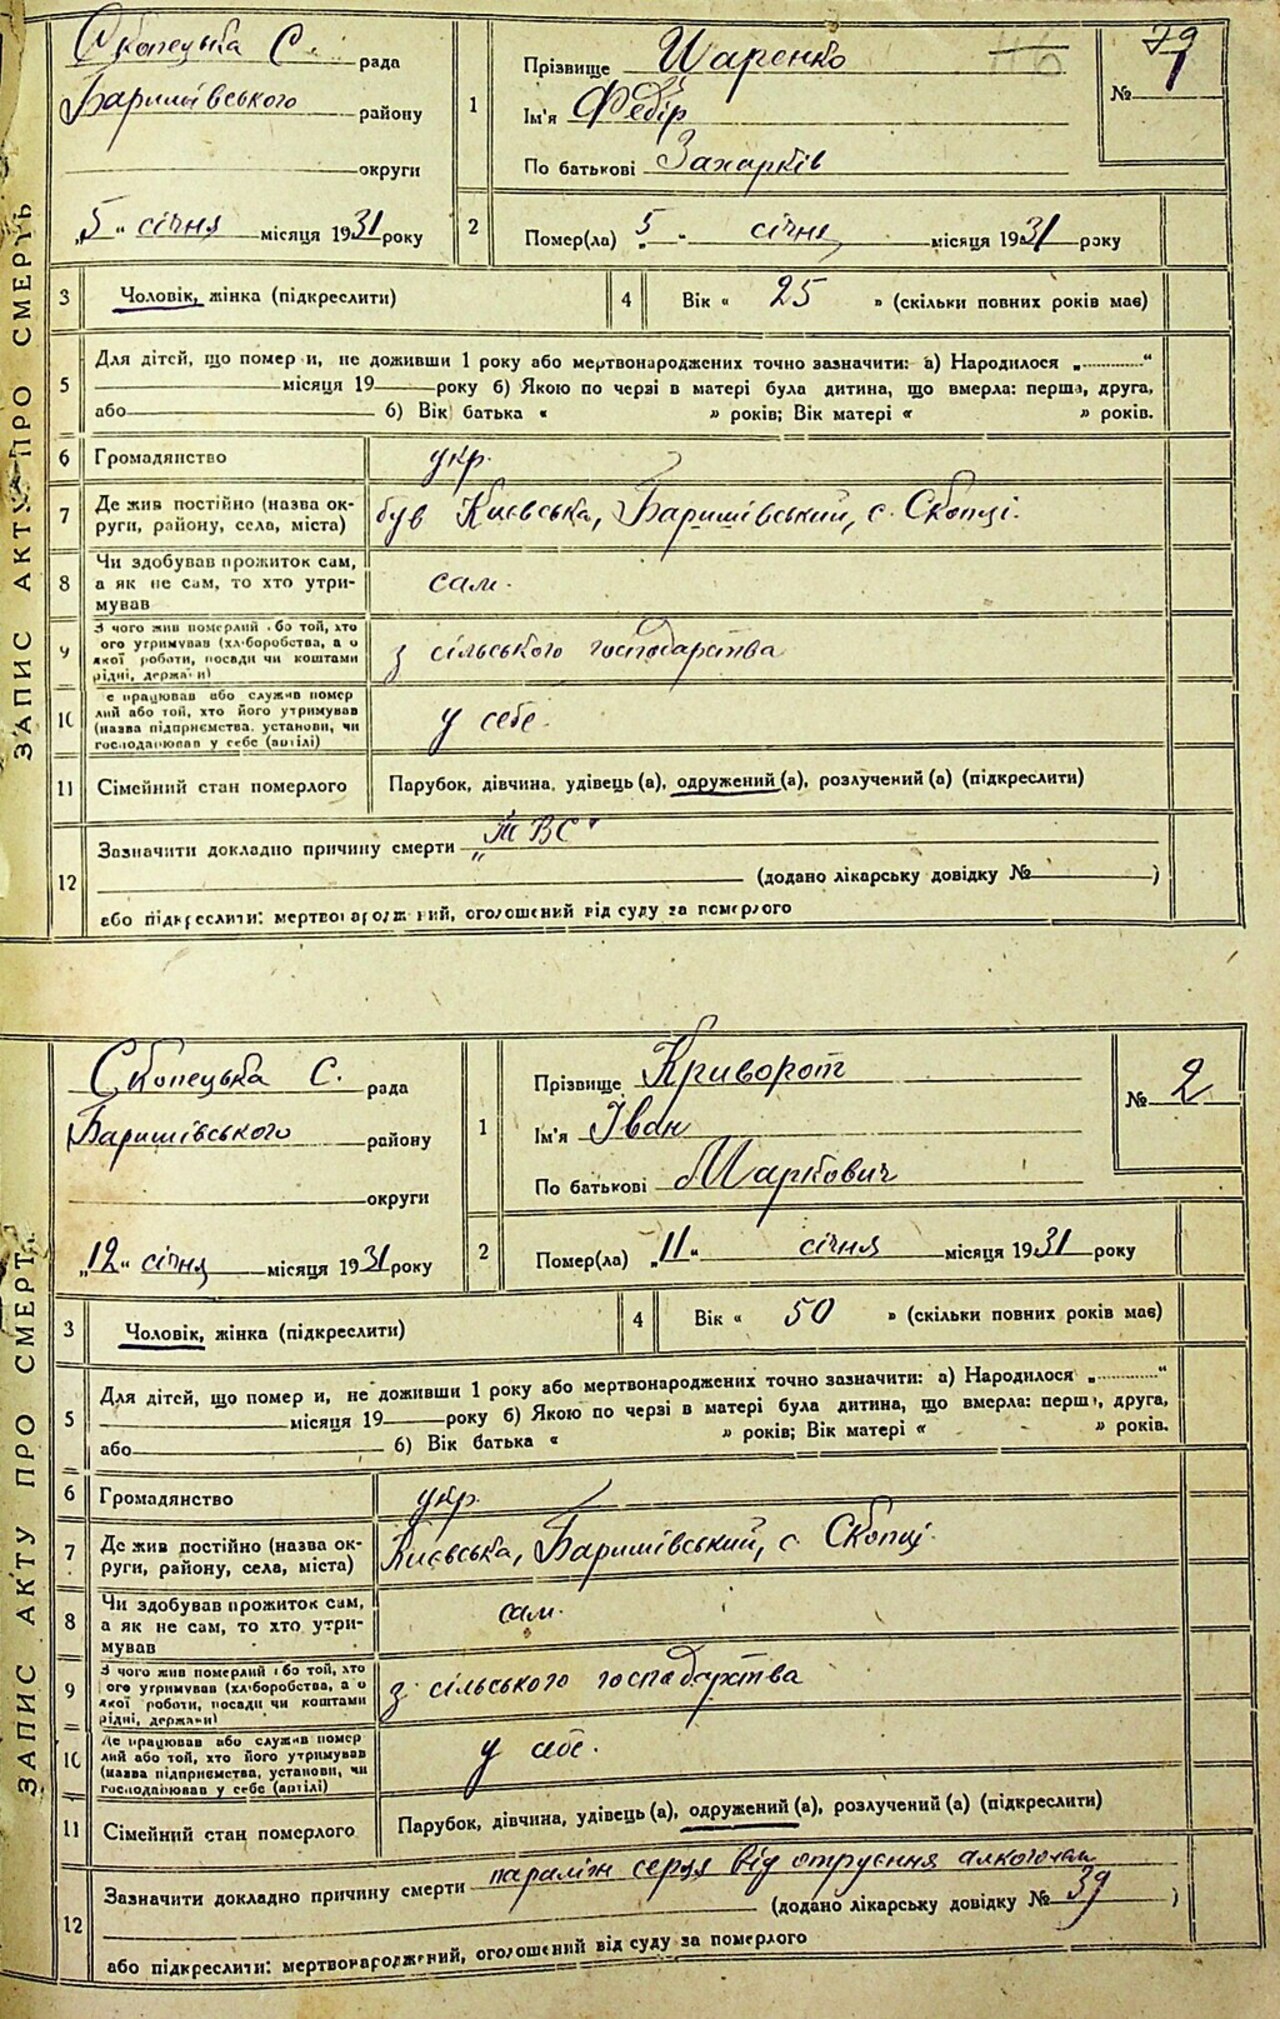 ЗАПИС АКТУ ПРО СМЕРТЬ
Скопецька С. рада
Баришівського району
округи
„5“ січня місяця 1931 року
1
Прізвище Шаренко
Ім'я Федір
По батькові Захарків
116
№ 1
79
2
Помер(ла) „5“ січня місяця 1931 року
3 Чоловік, жінка (підкреслити)
4 Вік « 25 » (скільки повних років має)
5
Для дітей, що помер и, не доживши 1 року або мертвонароджених точно зазначити: а) Народилося „ “
місяця 19 року б) Якою по черзі в матері була дитина, що вмерла: перша, друга,
або б) Вік батька « » років; Вік матері « » років.
6 Громадянство укр.
7
Де жив постійно (назва ок-
руги, району, села, міста)
був Києвська, Баришівський, с. Скопці.
8
Чи здобував прожиток сам,
а як не сам, то хто утри-
мував
сам.
9
З чого жив померлий або той, хто
ого утримував (хліборобства, а о
якої роботи, посади чи коштами
рідні, держави)
з сільського господарства
10
е працював або служив помер
лий або той, хто його утримував
(назва підприємства, установи, чи
господарював у себе (артілі)
у себе.
11 Сімейний стан померлого
Парубок, дівчина, удівець (а), одружений (а), розлучений (а) (підкреслити)
12
Зазначити докладно причину смерти „ТВС“
(додано лікарську довідку № )
або підкреслити: мертвонароджений, оголошений від суду за померлого
ЗАПИС АКТУ ПРО СМЕРТ
Скопецька С. рада
Баришівського району
округи
„12“ січня місяця 1931 року
1
Прізвище Криворот
Ім'я Іван
По батькові Маркович
№ 2
2
Помер(ла) „11“ січня місяця 1931 року
3 Чоловік, жінка (підкреслити)
4 Вік « 50 » (скільки повних років має)
5
Для дітей, що помер и, не доживши 1 року або мертвонароджених точно зазначити: а) Народилося „ “
місяця 19 року б) Якою по черзі в матері була дитина, що вмерла: перша, друга,
або б) Вік батька « » років; Вік матері « » років.
6 Громадянство укр.
7
Де жив постійно (назва ок-
руги, району, села, міста)
Києвська, Баришівський, с. Скопці.
8
Чи здобував прожиток сам,
а як не сам, то хто утри-
мував
сам.
9
З чого жив померлий або той, хто
ого утримував (хліборобства, а о
якої роботи, посади чи коштами
рідні, держави)
з сільського господарства
10
Де працював або служив помер
лий або той, хто його утримував
(назва підприємства, установи, чи
господарював у себе (артілі)
у себе.
11 Сімейний стан померлого
Парубок, дівчина, удівець (а), одружений (а), розлучений (а) (підкреслити)
12
Зазначити докладно причину смерти параліж серця від отруєння алкоголем
(додано лікарську довідку № 39 )
або підкреслити: мертвонароджений, оголошений від суду за померлого